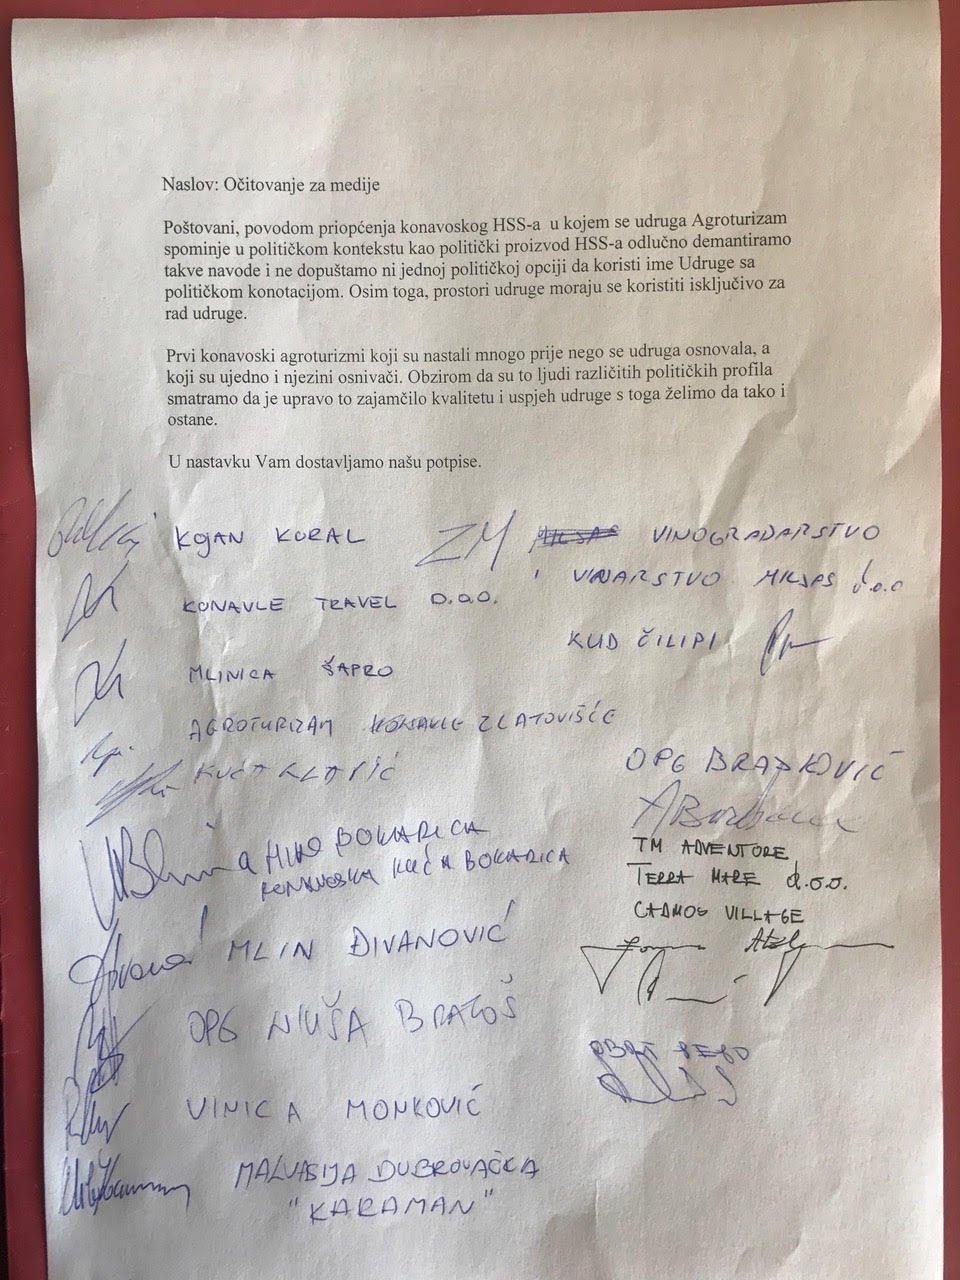 Naslov: Očitovanje za medije
Poštovani, povodom priopćenja konavoskog HSS-a u kojem se udruga Agroturizam
spominje u političkom kontekstu kao politički proizvod HSS-a odlučno demantiramo
takve navode i ne dopuštamo ni jednoj političkoj opciji da koristi ime Udruge sa
političkom konotacijom. Osim toga, prostori udruge moraju se koristiti isključivo za
rad udruge.
Prvi konavoski agroturizmi koji su nastali mnogo prije nego se udruga osnovala, a
koji su ujedno i njezini osnivači. Obzirom da su to ljudi različitih političkih profila
smatramo da je upravo to zajamčilo kvalitetu i uspjeh udruge s toga želimo da tako i
ostane.
U nastavku Vam dostavljamo našu potpise.
KOJAN KORAL
KONAVLE TRAVEL D.O.O.
MLINICA ŠAPRO
AGROTURIZAM KONAVLE ZLATOVIŠĆE
KUĆA KLARIĆ
MIHO BOKARICA
KONAVOSKA KUĆA BOKARICA
MLIN ĐIVANOVIĆ
OPG NIUŠA BRATOŠ
VINICA MONKOVIĆ
MALVASIJA DUBROVAČKA
"KARAMAN"
ZM VINOGRADARSTVO
I VINARSTVO d.o.o
KUD ČILIPI
OPG
TM ADVENTURE
TERRA MARE d.o.o.
CADMOS VILLAGE